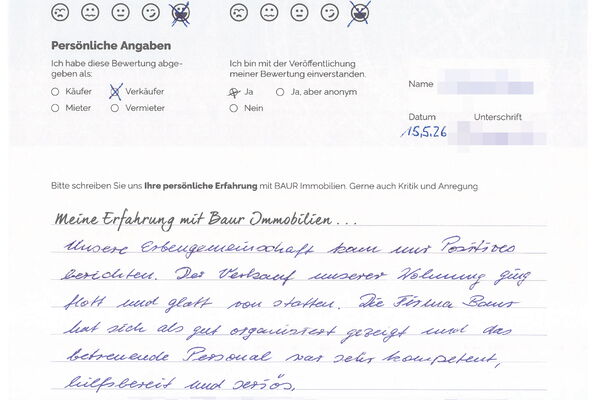 Persönliche Angaben
Ich habe diese Bewertung abge-
geben als:
Käufer
Verkäufer
Mieter
Vermieter
Ich bin mit der Veröffentlichung
meiner Bewertung einverstanden.
Ja
Ja, aber anonym
Nein
Name
Datum
Unterschrift
15,5.26
Bitte schreiben Sie uns Ihre persönliche Erfahrung mit BAUR Immobilien. Gerne auch Kritik und Anregung
Meine Erfahrung mit Baur Immobilien . . .
Unsere Erbengemeinschaft kann nur Positives
berichten. Der Verkauf unserer Wohnung ging
flott und glatt von statten. Die Firma Baur
hat sich als gut organisiert gezeigt und das
betreuende Personal war sehr kompetent,
hilfsbereit und seriös.